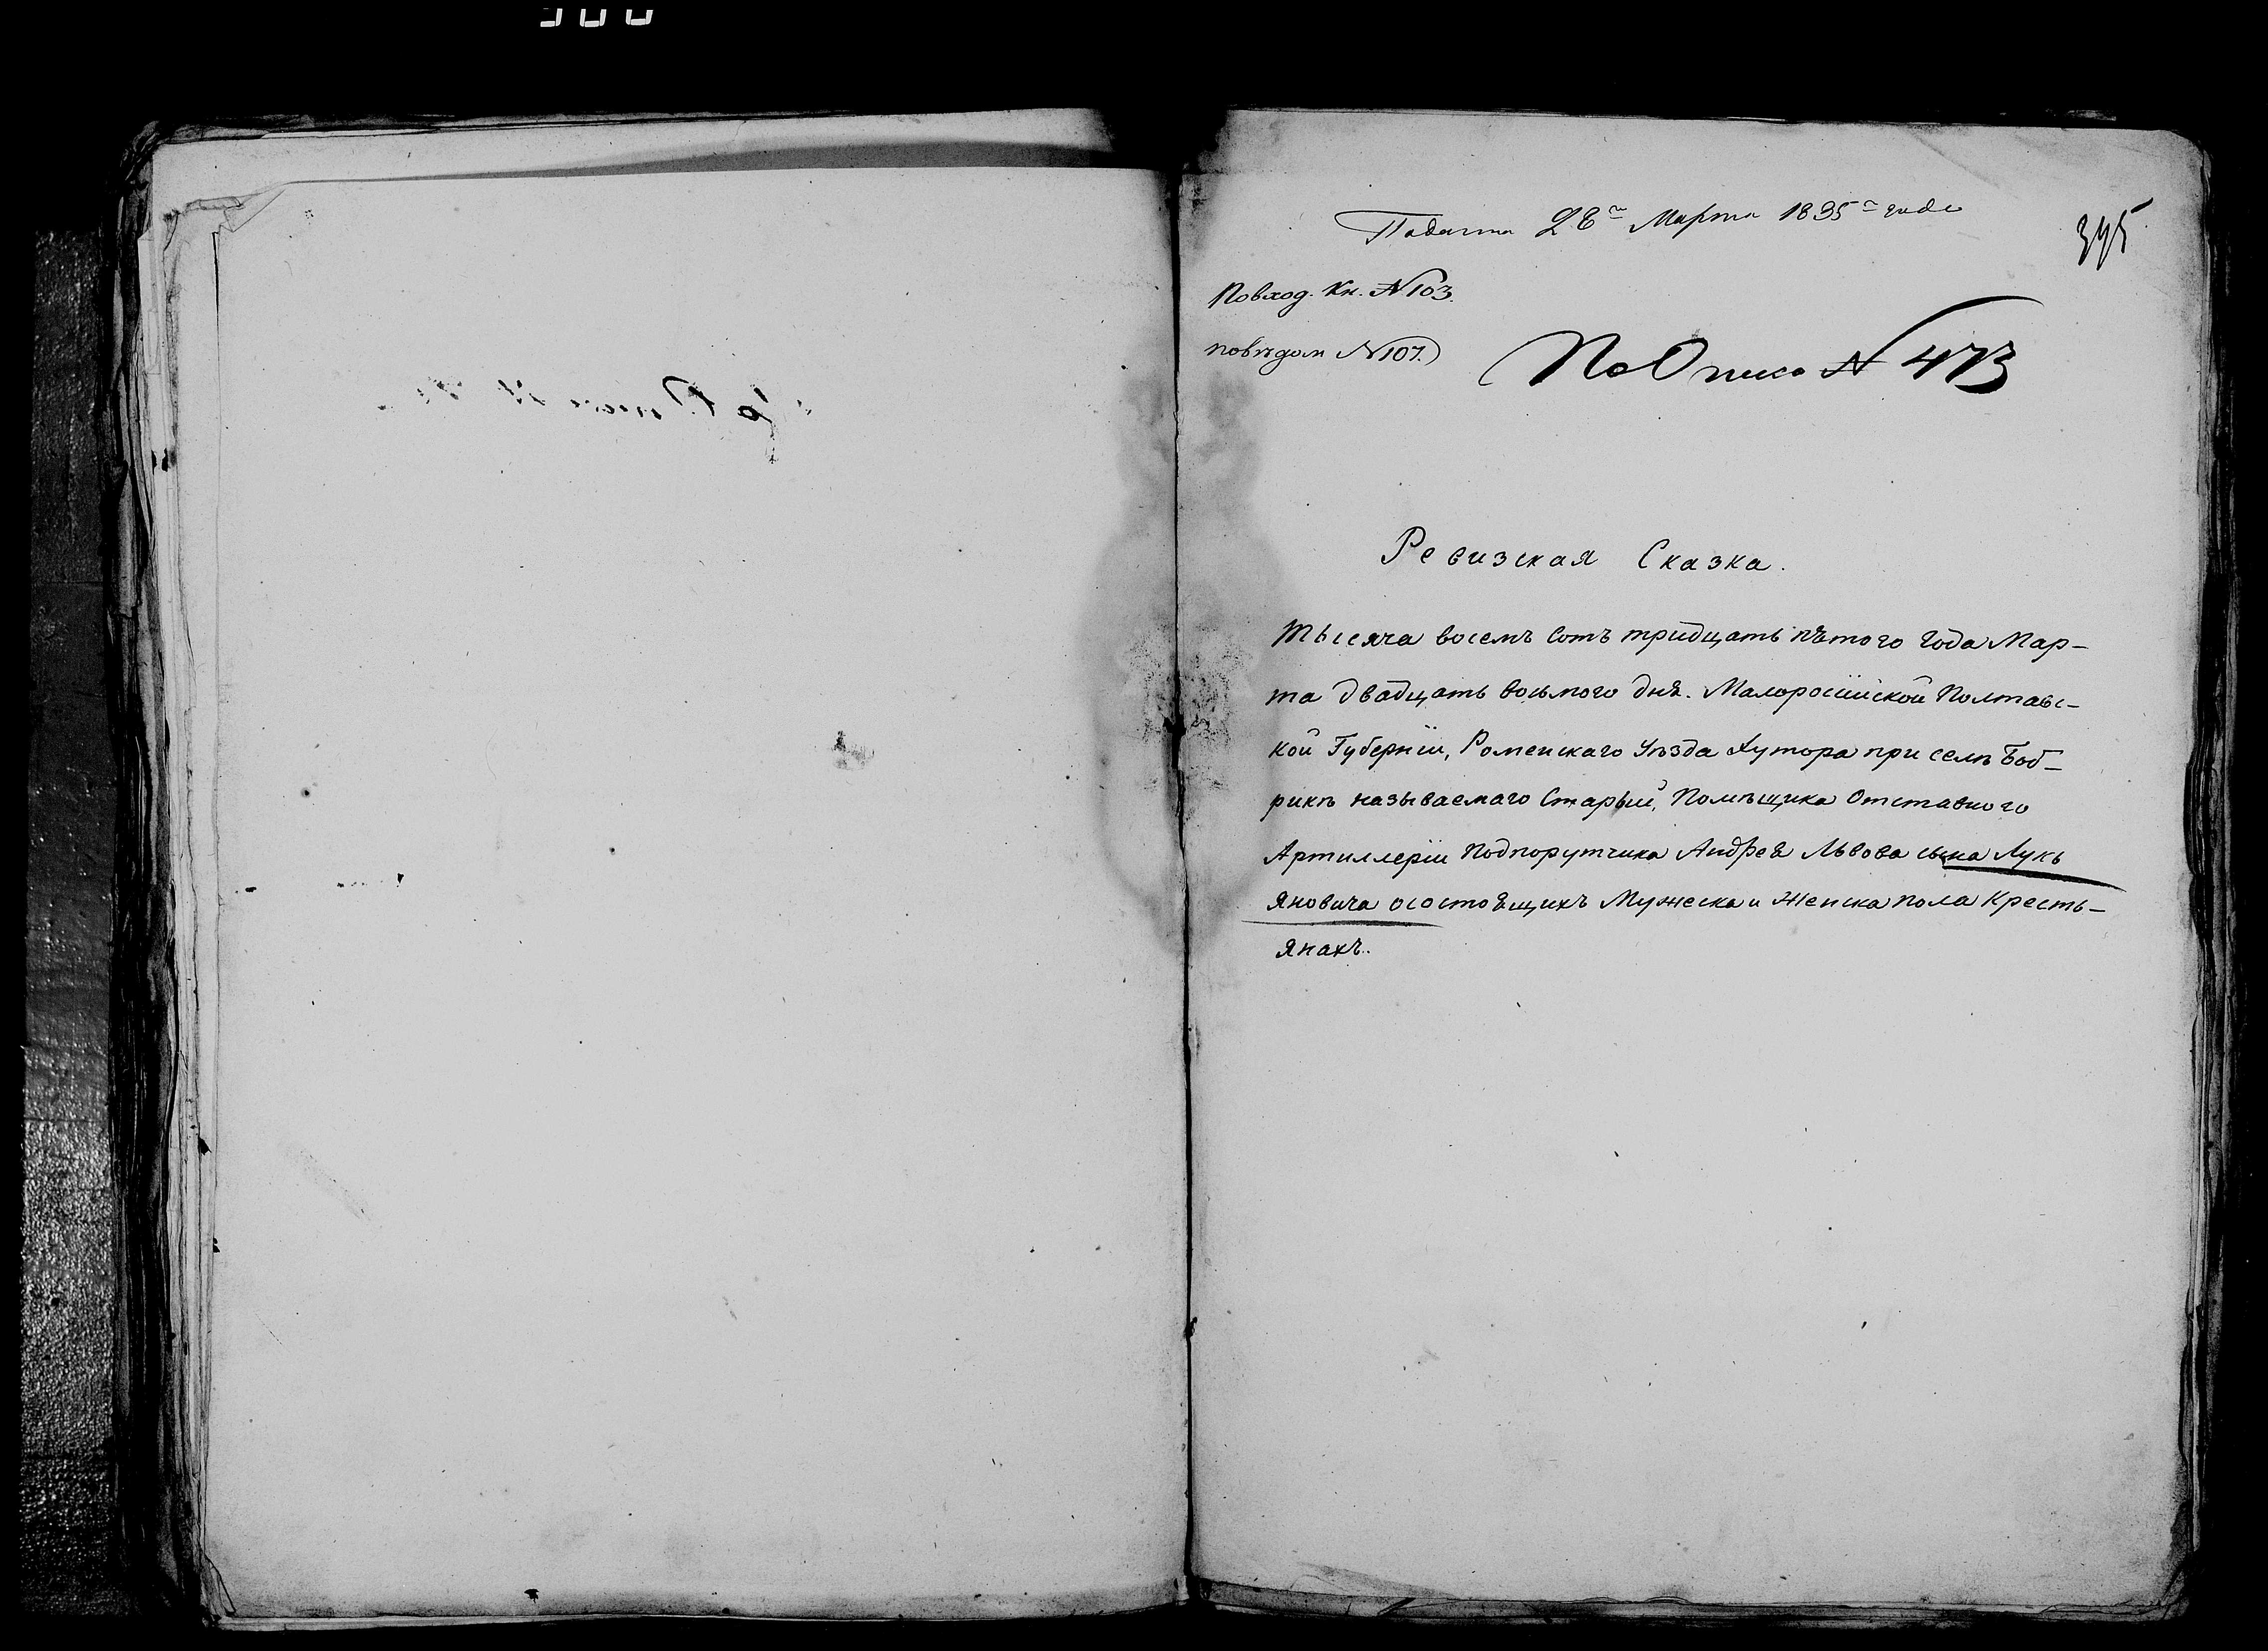 Подана 28го Марта 1835го года
395
Повход. Кн. №103.
повѣдом №107.
По Описи № 473
Ревизская Сказка.
Тысяча восемъ сотъ тридцать пѣтого Года Мар-
та двадцать восьмого дня. Малоросійской Полтавс-
кой Губерніи, Роменскаго Уѣзда Хутора при селѣ Боб-
рикѣ называемаго Старый, Помѣщика Отставного
Артиллеріи Подпорутчика Андрея Львова сына Лукь
яновича осостоящихъ Мужеска и Женска пола Кресть-
янахъ.